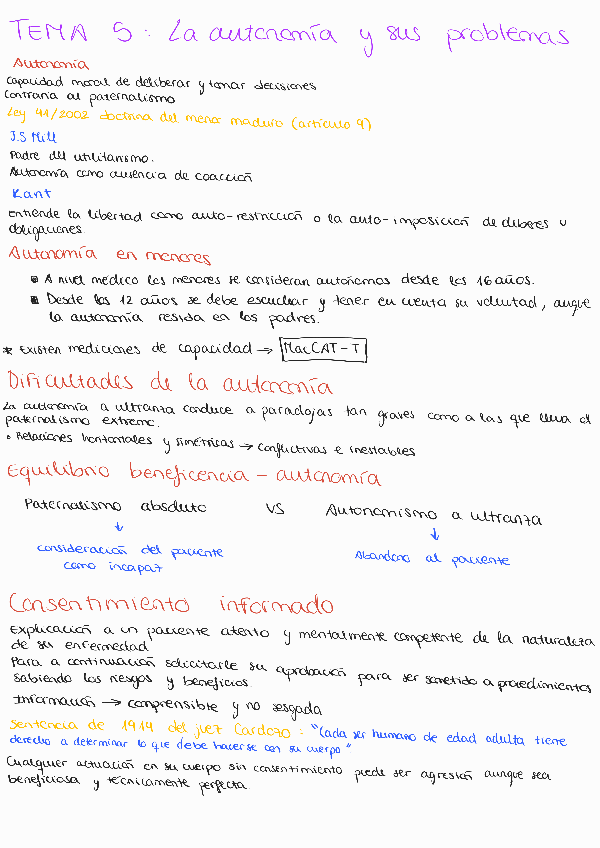 TEMA 5: La autonomía y sus problemas
Autonomía
Capacidad moral de deliberar y tomar decisiones
Contraria al paternalismo
Ley 41/2002 doctrina del menor maduro (artículo 9)
J.S Mill
Padre del utilitarismo.
Autonomía como ausencia de coacción
Kant
Entiende la libertad como auto-restricción o la auto-imposición de deberes u
obligaciones.
Autonomía en menores
A nivel médico los menores se consideran autónomos desde los 16 años.
Desde los 12 años se debe escuchar y tener en cuenta su voluntad, aunqe
la autonomía resida en los padres.
* Existen mediciones de capacidad → MacCAT-T
Dificultades de la autonomía
La autonomía a ultranza conduce a paradojas tan graves como a las que lleva el
paternalismo extremo.
• Relaciones horizontales y simétricas → conflictivas e inestables
Equilibrio beneficencia - autonomía
Paternalismo absoluto VS Autonomismo a ultranza
↓ ↓
consideración del paciente Abandono al paciente
como incapaz
Consentimiento informado
Explicación a un paciente atento y mentalmente competente de la naturaleza
de su enfermedad
Para a continuación solicitarle su aprobación para ser sometido a procedimientos
sabiendo los riesgos y beneficios.
Información → comprensible y no sesgada
Sentencia de 1914 del juez Cardozo: "Cada ser humano de edad adulta tiene
derecho a determinar lo que debe hacerse con su cuerpo"
Cualquier actuación en su cuerpo sin consentimiento puede ser agresión aunque sea
beneficiosa y técnicamente perfecta.